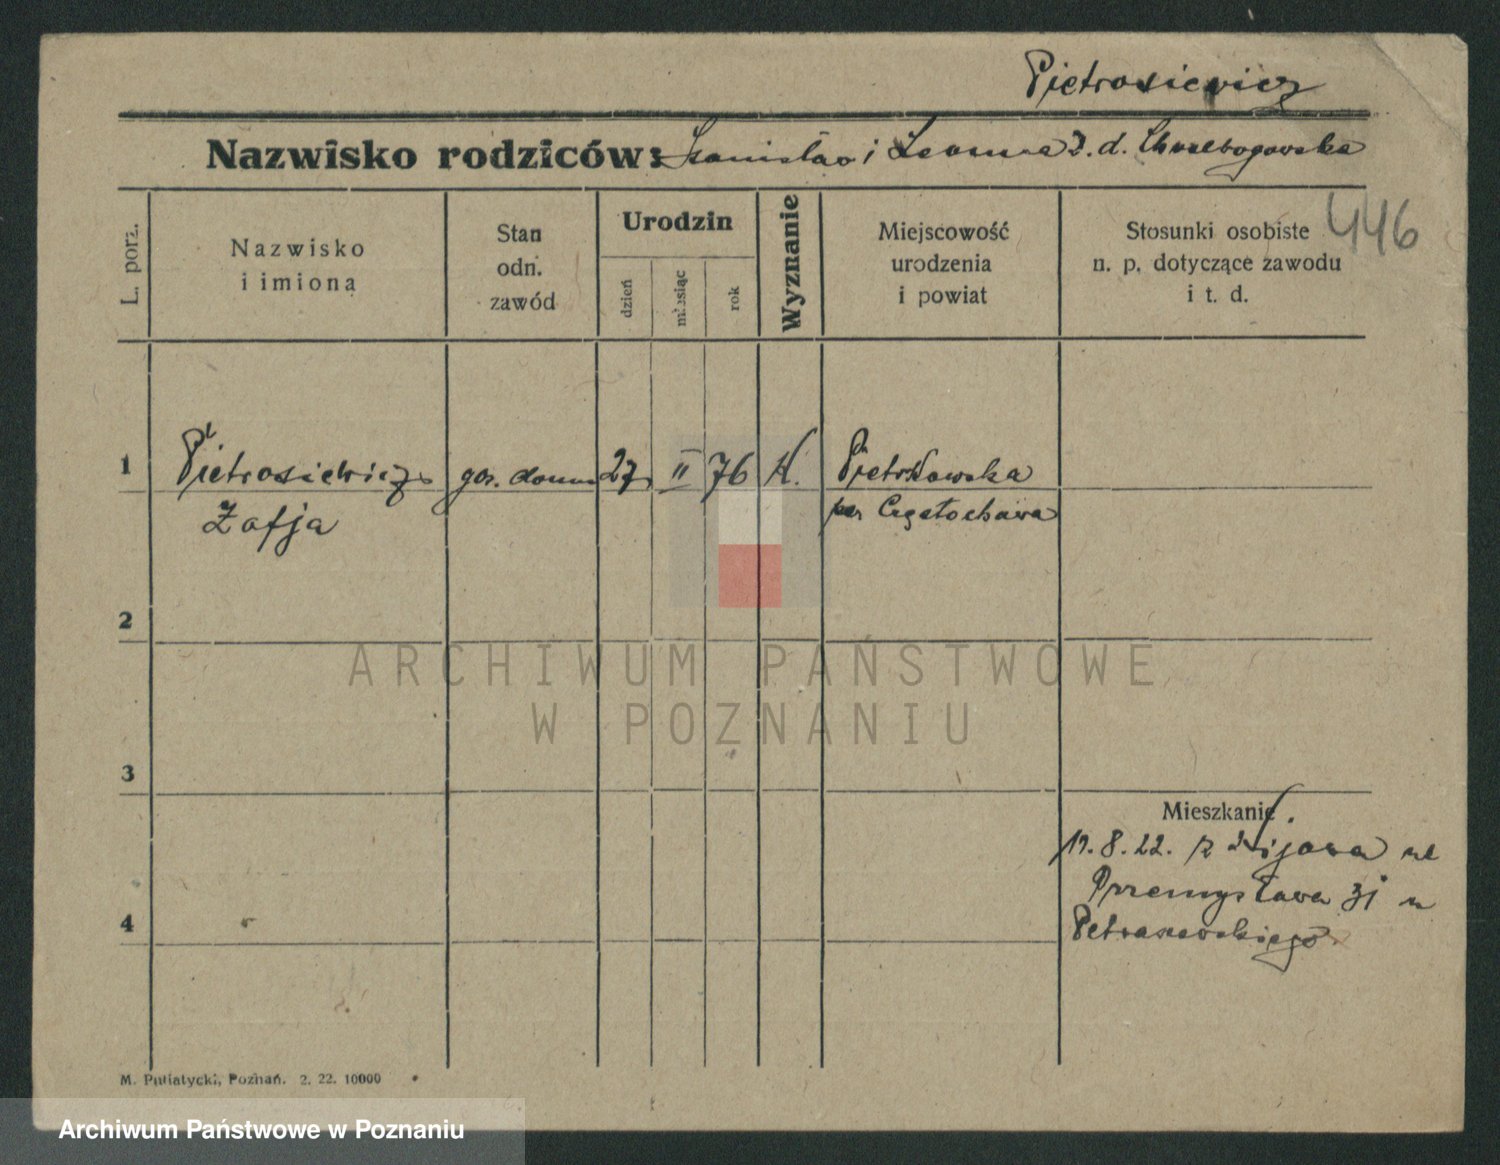 Pietrosiewicz
Nazwisko rodziców: Stanisław i Leonia z. d.
446
L. porz.
Nazwisko
i imiona
Stan
odn.
zawód
Urodzin
dzień
miesiąc
rok
Wyznanie
Miejscowość
urodzenia
i powiat
Stosunki osobiste
n. p. dotyczące zawodu
i t. d.
1 Pietrosiewicz gos. domu 27 II 76 K.
Zofja
Częstochowa
2
ARCHIWUM PAŃSTWOWE
W POZNANIU
3
Mieszkanie
19. 8. 22. z Kijowa ul
4 Przemysława 31 u
Petraszewskiego
M. Putiatycki, Poznań. 2. 22. 10000
Archiwum Państwowe w Poznaniu